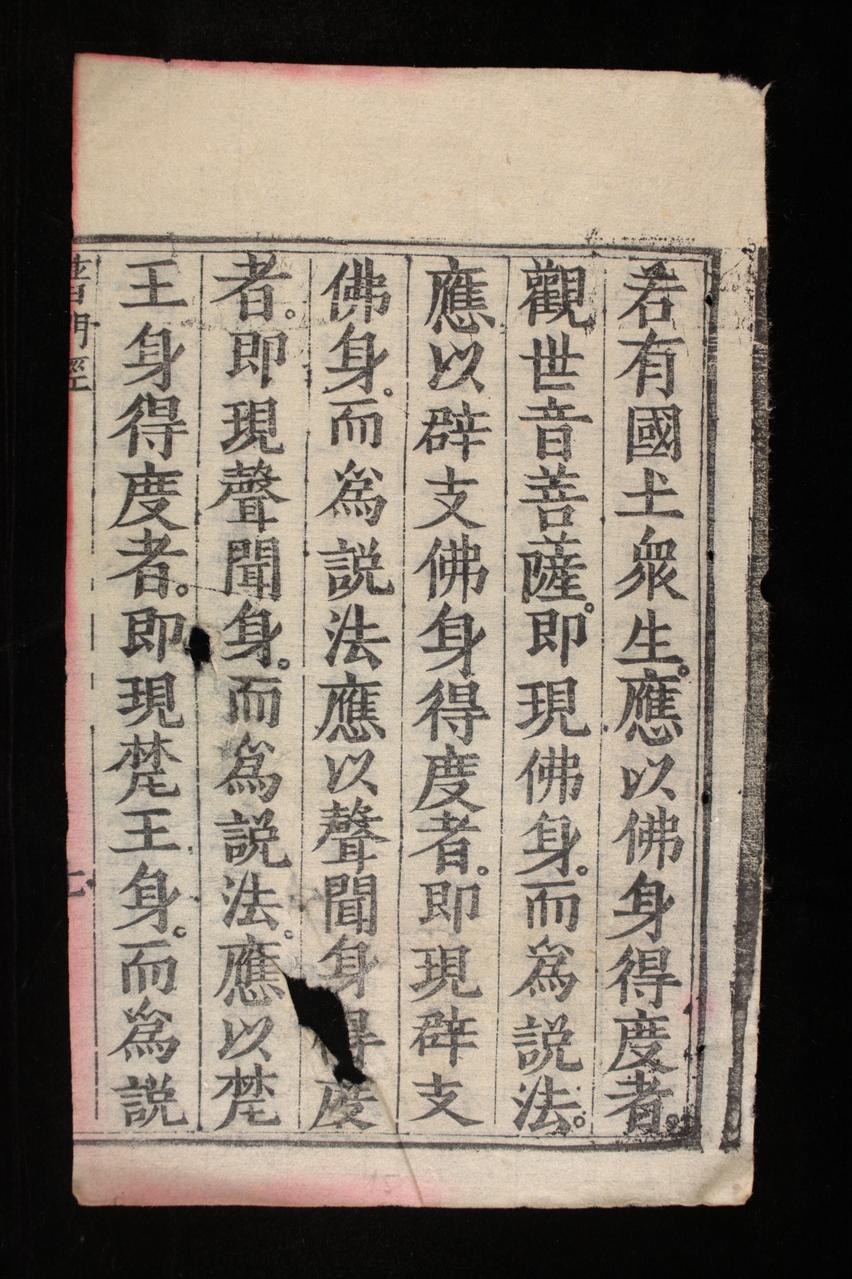 若有國土衆生。應以佛身得度者。
觀世音菩薩。即現佛身。而爲説法。
應以辟支佛身得度者。即現辟支
佛身。而爲説法應以聲聞身得度
者。即現聲聞身。而爲説法。應以梵
王身得度者。即現梵王身。而爲説
普門經